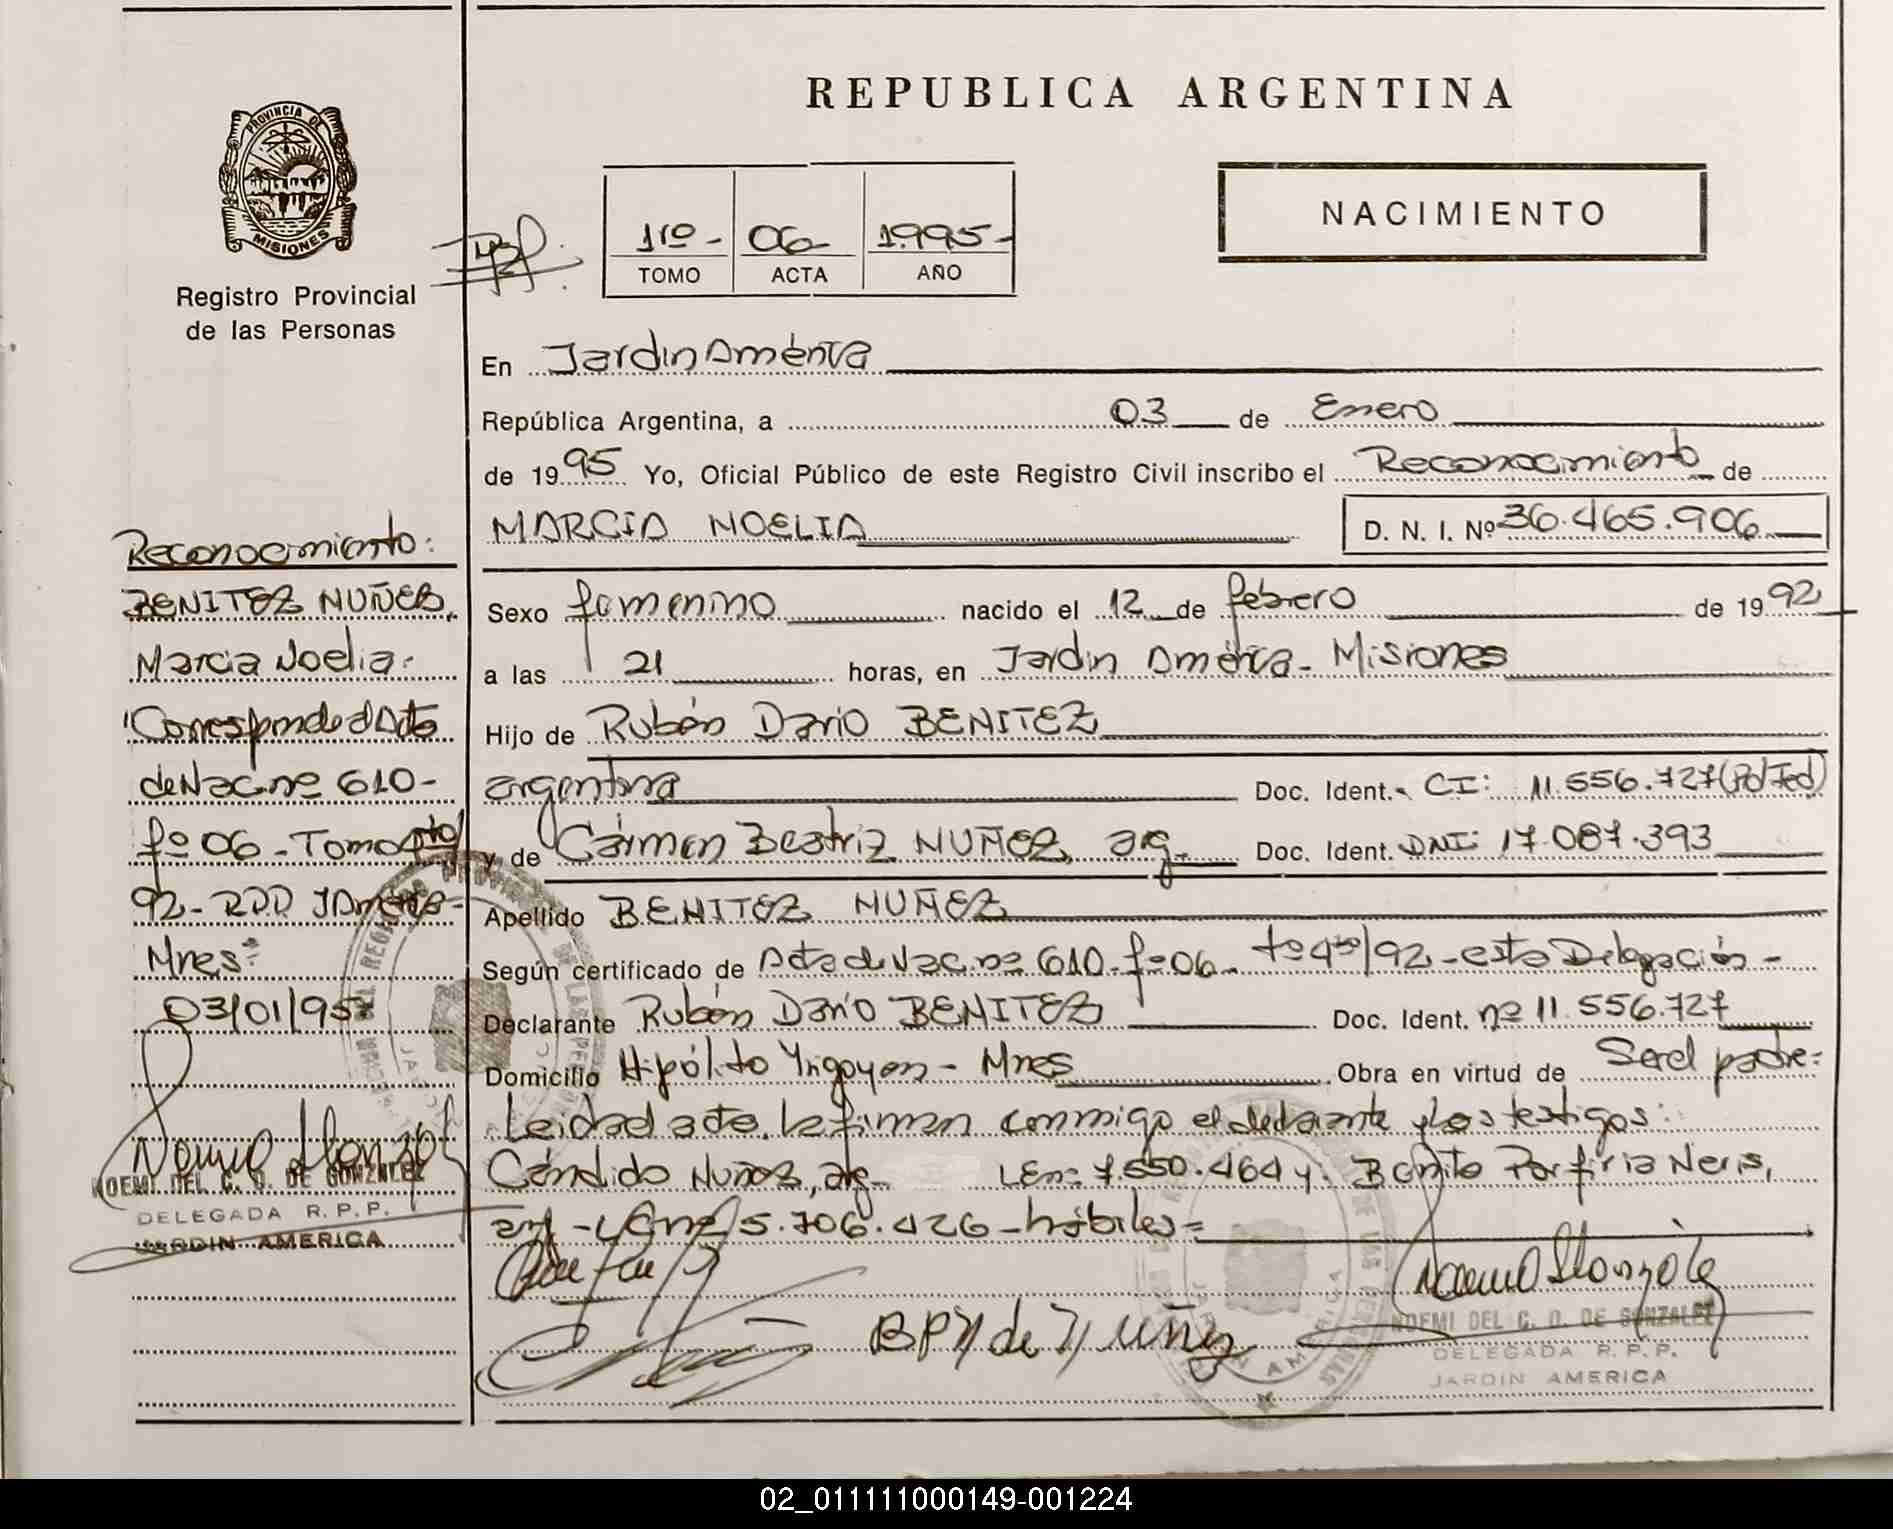 REPUBLICA ARGENTINA
PROVINCIA DE
MISIONES
Registro Provincial
de las Personas
1ro - 06 1.995-
TOMO ACTA AÑO
NACIMIENTO
En Jardin América
República Argentina, a 03 de Enero
de 1995 Yo, Oficial Público de este Registro Civil inscribo el Reconocimiento de
MARCIA NOELIA D. N. I. Nº 36.465.906
Sexo femenino nacido el 12 de febrero de 1992
a las 21 horas, en Jardin América - Misiones
Hijo de Rubén Dario BENITEZ
argentina Doc. Ident. CI: 11.556.727 (Pol Fed)
y de Cármen Beatriz NUÑEZ, arg. Doc. Ident. DNI: 17.087.393
Apellido BENITEZ NUÑEZ
Según certificado de Acta de Nac. nº 610 - fº 06 - tº 4to/92 - esta Delegación -
Declarante Rubén Dario BENITEZ Doc. Ident. nº 11.556.727
Domicilio Hipólito Yrigoyen - Mnes Obra en virtud de Ser el padre =
Leida el acta, la firman conmigo el declarante y los testigos:
Cándido Nuñez, arg. LEnº 7.550.464 y: Benita Porfiria Neris,
arg - LCnº 5.706.426 - hábiles =
BPN de Nuñez
NOEMI DEL C. O. DE GONZALEZ
DELEGADA R. P. P.
JARDIN AMERICA
Reconocimiento:
BENITEZ NUÑEZ,
Marcia Noelia.
Corresponde al Acta
de Nac. nº 610 -
fº 06 - Tomo 4to/
92 - RPP J América -
Mnes =
03/01/95
NOEMI DEL C. O. DE GONZALEZ
DELEGADA R. P. P.
JARDIN AMERICA
02_011111000149-001224